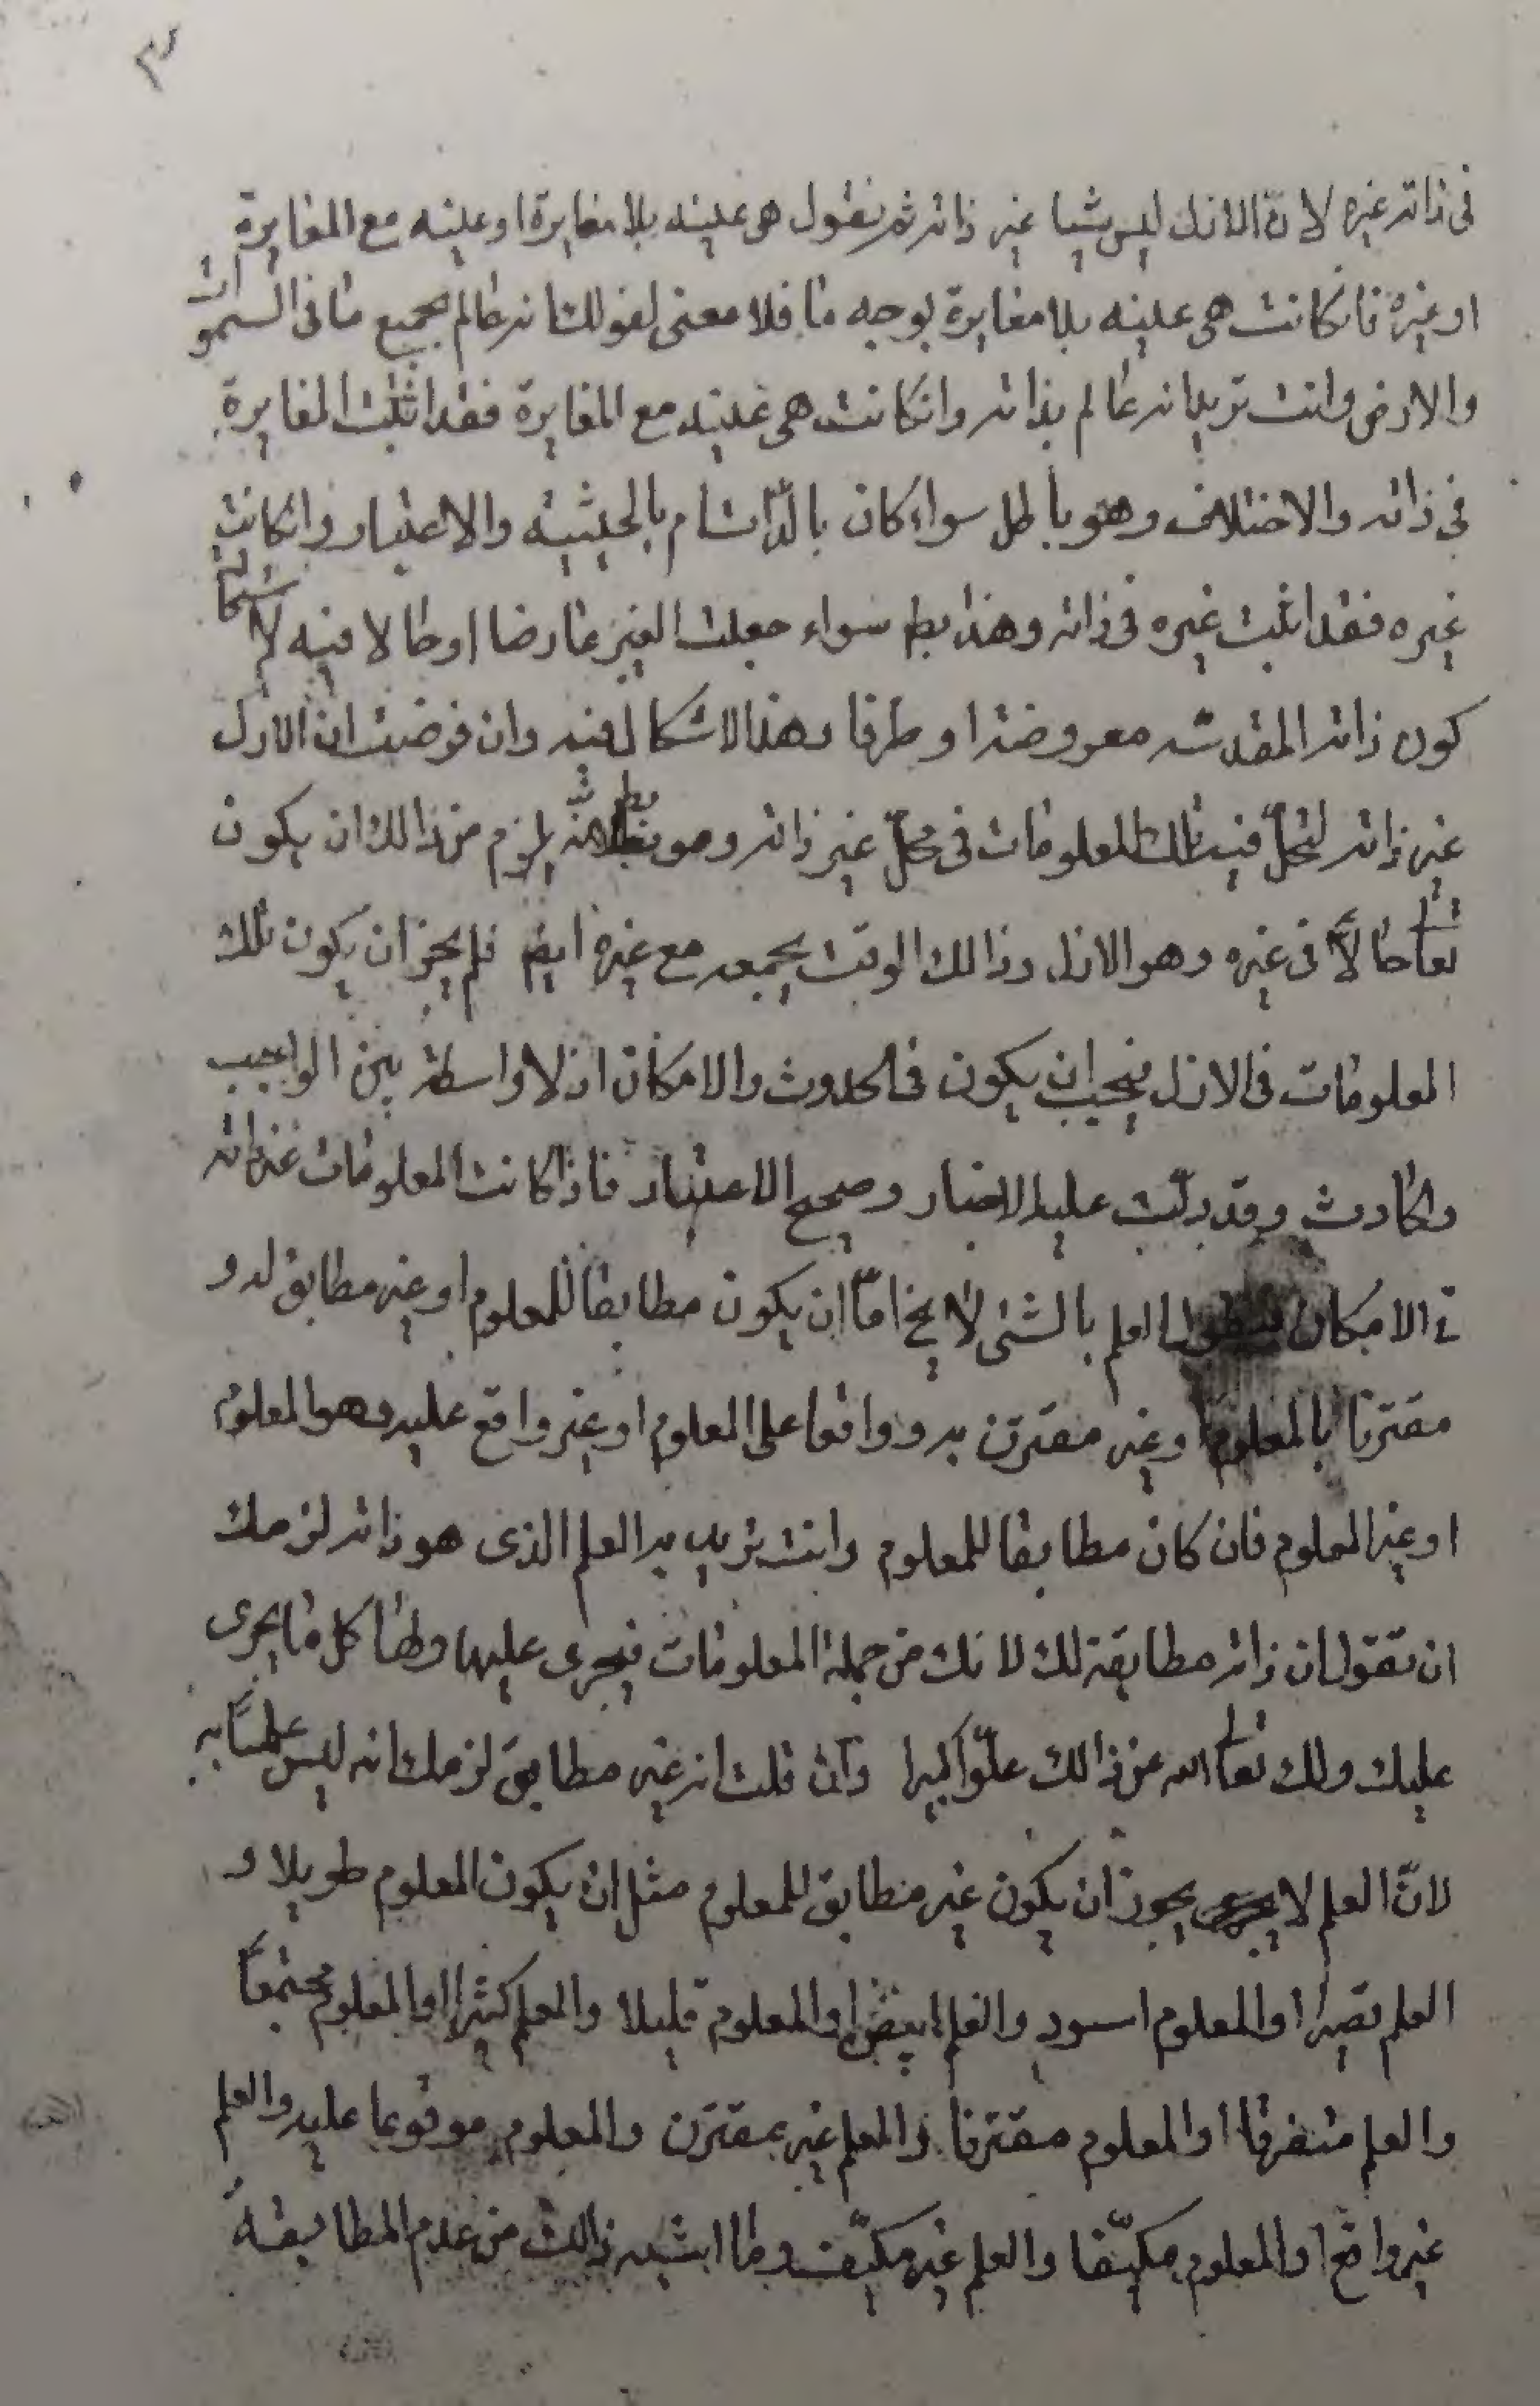 في ذاته غيره لان الازل ليس شيئا غير ذاته ثم نقول هي عينه بلا مغايرة او عينه مع المغايرة
او غيره فان كانت هي عينه بلا مغايرة بوجه ما فلا معنى لقولك انه عالم بجميع ما في السموات
والارض وانت تريد انه عالم بذاته وان كانت هي عينه مع المغايرة فقد اثبت المغايرة
في ذاته والاختلاف وهو باطل سواء كان بالذات ام بالحيثية والاعتبار وان كانت
غيره فقد اثبت غيره في ذاته وهذا بط سواء جعلت الغير عارضا او حالا فيه لاستحالة
كون ذاته المقدسة معروضة او ظرفا وهذا لا اشكال فيه وان فرضت ان الازل
غير ذاته لتحل فيه تلك المعلومات في محل غير ذاته وهو بط لانه يلزم من ذالك ان يكون
تعالى حالاً في غيره وهو الازل وذالك الوقت يجمعه مع غيره ايضا فلم يجز ان يكون تلك
المعلومات في الازل فيجب ان يكون في الحدوث والامكان اذ لا واسطة بين الواجب
والحادث وقد دلّت عليه الاخبار وصحيح الاعتبار فاذا كانت المعلومات غير ذاته
في الامكان العلم بالشئ لا يخ امّا ان يكون مطابقا للمعلوم او غير مطابق له و
مقترنا بالمعلوم او غير مقترن به وواقعا على المعلوم او غير واقع عليه وهو المعلوم
او غير المعلوم فان كان مطابقا للمعلوم وانت تريد به العلم الذى هو ذاته لزمك
ان تقول ان ذاته مطابقة لك لانك من جملة المعلومات فيجرى عليها ولها كل ما يجرى
عليك ولك تعالى الله عن ذالك علوّا كبيرا وان قلت انه غير مطابق لزمك انه ليس علمًا به
لانّ العلم لا يجوز ان يكون غير مطابق للمعلوم مثل ان يكون المعلوم طويلا و
العلم قصيرا او المعلوم اسود والعلم ابيض او المعلوم قليلا والعلم كثيرا او المعلوم مجتمعًا
والعلم متفرقا او المعلوم مقترنا والعلم غير مقترن والمعلوم موقوعا عليه والعلم
غير واقع او المعلوم مكيّفا والعلم غير مكيّف وما اشبه ذالك من عدم المطابقة